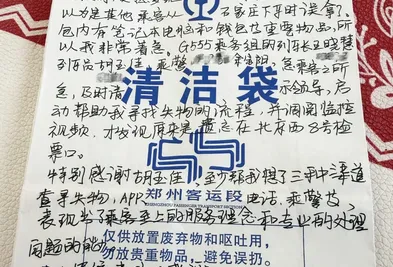 以为是其他乘客从石家庄下车时误拿。
包内有笔记本电脑和钱包等重要物品,所
以我非常着急。G555乘务组的列车长王晓慧
列车员胡玉佳,乘警 急乘客之所
急,及时请示领导,启
清洁袋
动帮助我寻找失物的流程,并调阅监控
视频,才发现原来是遗忘在北京西8号检
票口。
特别感谢胡玉佳,至少帮我想了三种渠道
查寻失物,APP 电话,乘警等,
郑州客运段
ZHENGZHOU PASSENGER TRANSPORT SECTION
表现出了乘客至上的服务理念和专业的处理
问题的能力
仅供放置废弃物和呕吐用,
勿放贵重物品,避免误扔。